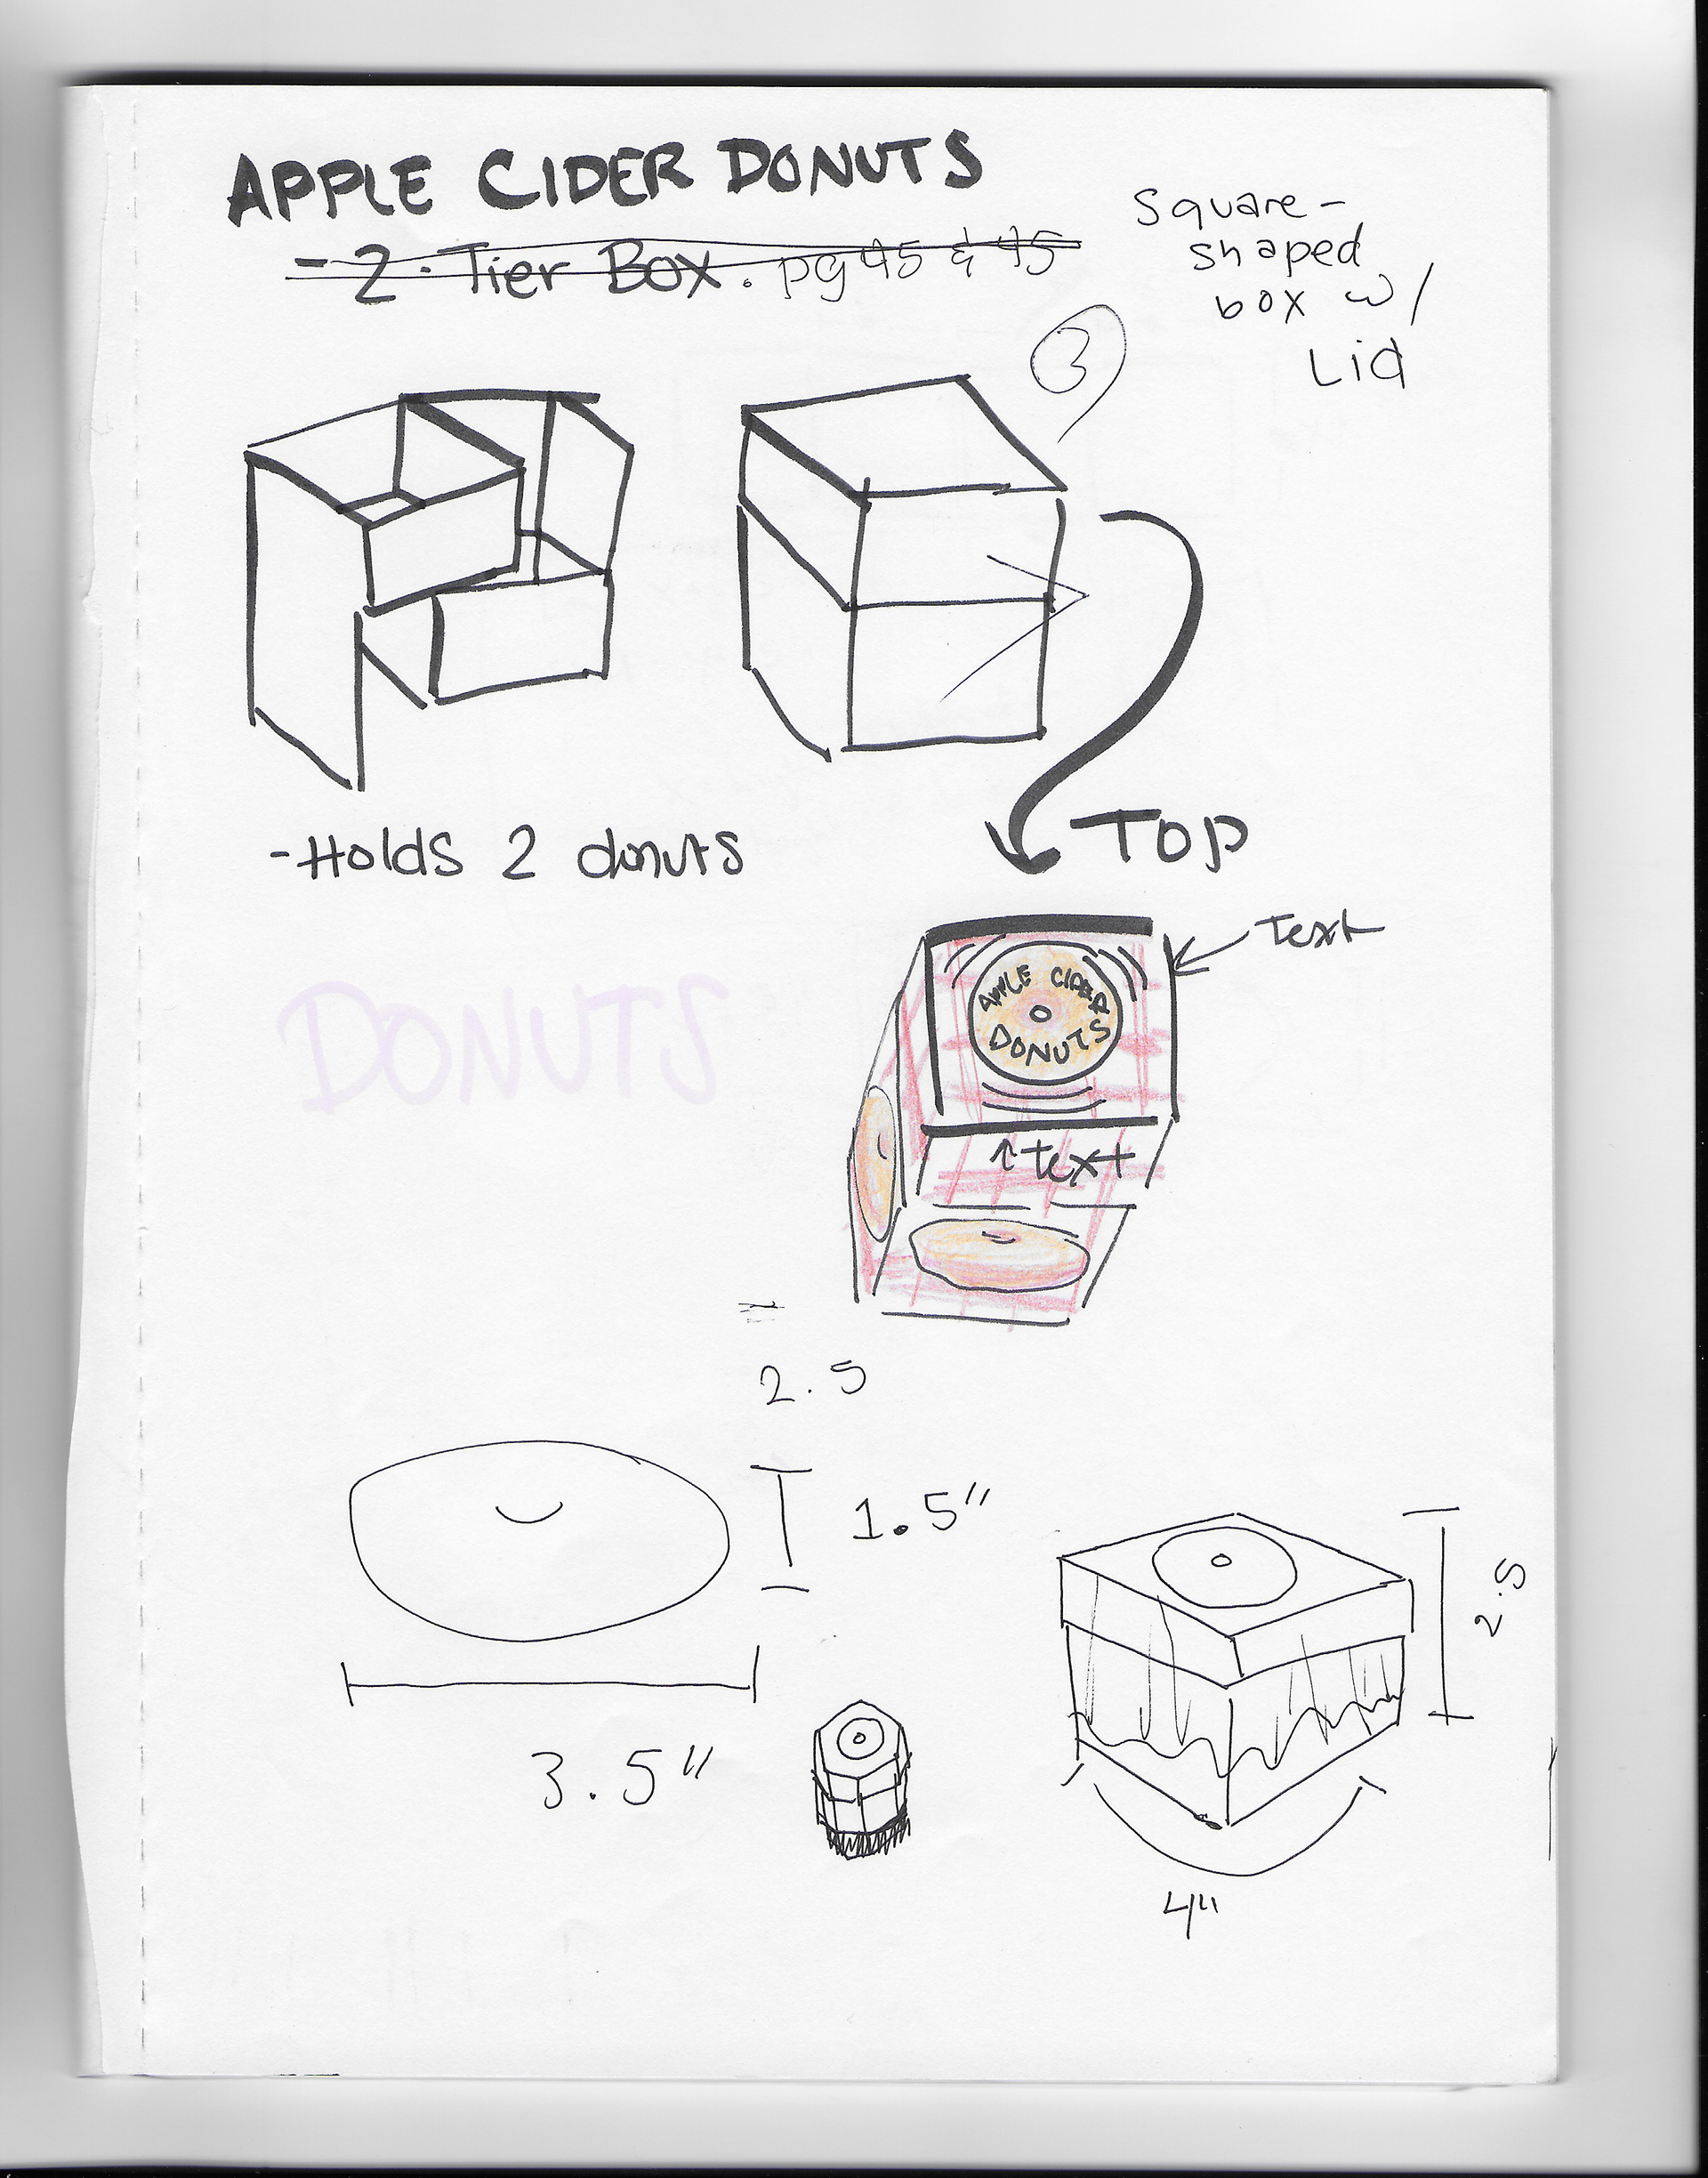 APPLE CIDER DONUTS
- 2. Tier Box. pg 45 & 45
Square-
shaped
box w/
Lid
3
-Holds 2 donuts
TOP
Text
APPLE CIDER
DONUTS
↑ text
DONUTS
2.5
1.5"
3.5"
2.5
4"